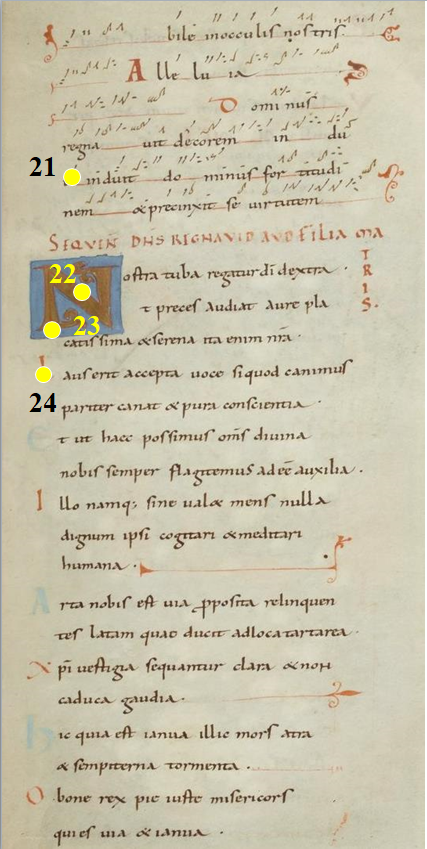 bile inocculis nostris.
Alleluia
Dominus
regna uit decorem in du
21 induit dominus fortitudi
nem & precinxit se uirtutem
SEQUEN̄ DN̄S REGNAVIT AVD FILIA MA
TRIS.
22
Nostra tuba regatur dī dextra.
23
t preces audiat aure pla
catissima & serena ita enim nr̄a.
24
aus erit accepta uoce si quod canimus
pariter canat & pura conscientia.
Et ut haec possimus om̄s diuina
nobis semper flagitemus adeē auxilia.
Illo namq; sine ual& mens nulla
dignum ipsi cogitari & meditari
humana.
Arta nobis est uia p̱posita relinquen
tes latam quae ducit ad loca tartarea.
Xp̄i uestigia sequantur clara & non
caduca gaudia.
Hic quia est ianua illic mors atra
& sempiterna tormenta.
O bone rex pie iuste misericors
qui es uia & ianua.